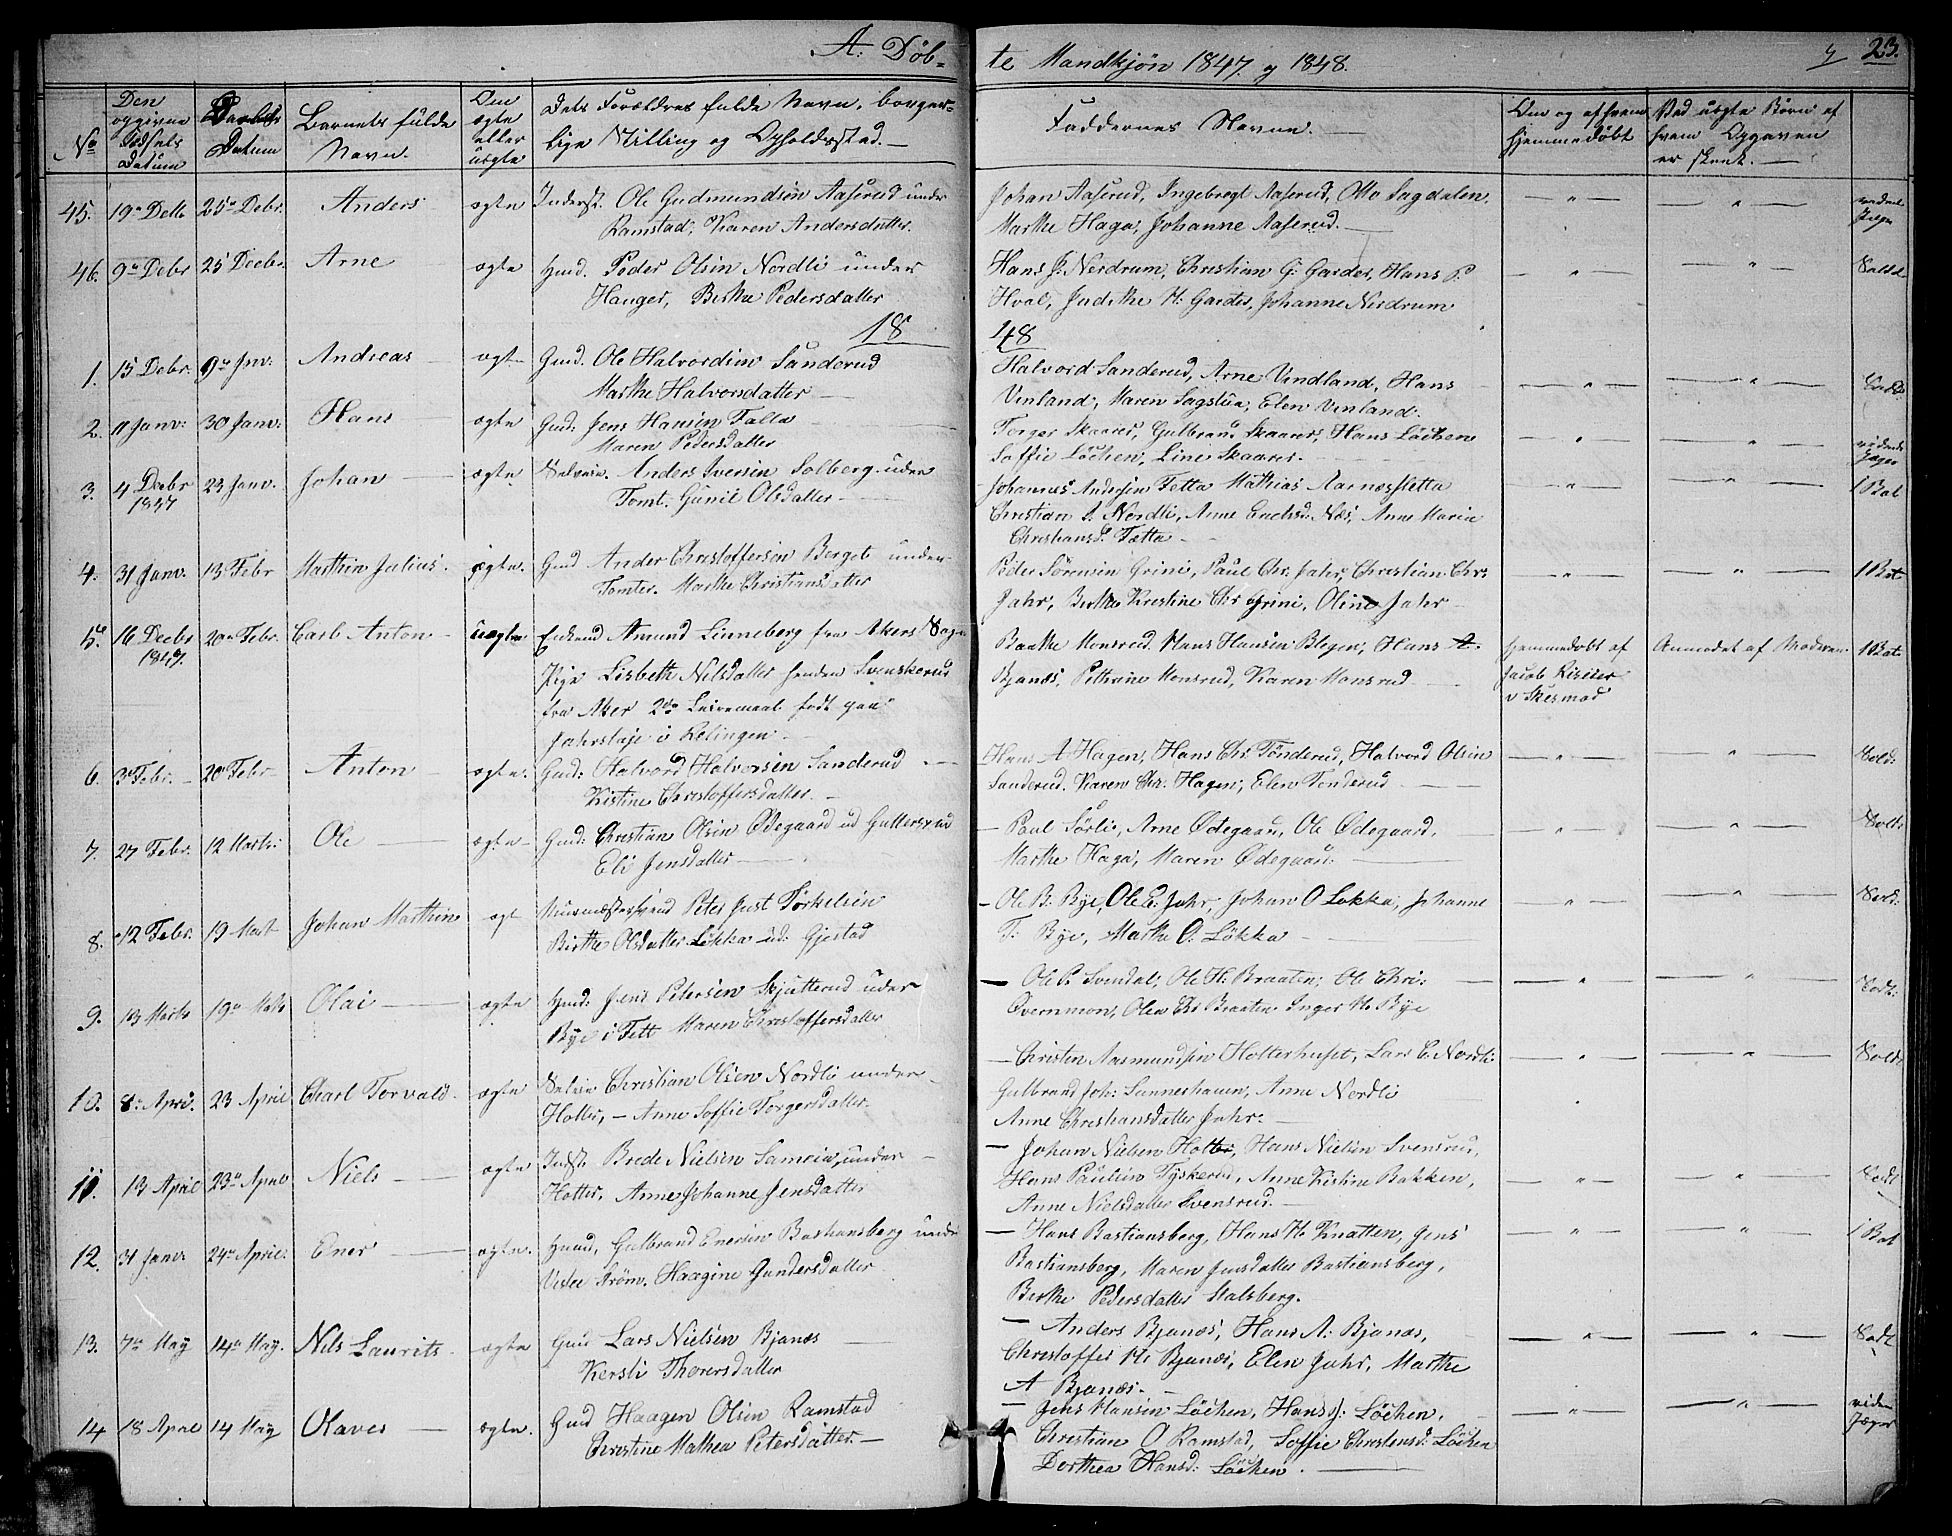 A: Døb-
te Mandkjøn 1847. og 1848.
23.
No
Den opgivne Fødsels Datum
Daabs Datum
Barnets fulde Navn.
Om ægte eller uægte
Dets Forældres fulde Navn, borger-
lige Stilling og Opholdssted.
Faddernes Navne.
Om og af hvem hjemmedøbt
Ved uægte Børn af hvem Opgaven er skeet.
45. 19de 25de Debr. Anders ægte Inderst. Ole Gudmundsen Aaserud under
Ramstad, Karen Andersdatter.
Johan Aaserud, Ingebregt Aaserud, Otto Sagdalen,
Marthe Haga, Johanne Aaserud.
46. 9de Debr 25 Decbr. Arne ægte Hmd. Peder Olsen Nordli under
Hauger, Berthe Pedersdatter
Hans J. Nerdrum, Christian G. Garder, Hans P.
Hval, Judithe H. Garder, Johanne Nerdrum
1848
1. 15 Debr. 9de Jnv. Andreas ægte Gmd. Ole Halvordsen Sanderud
Marthe Halvorsdatter
Halvord Sanderud, Arne Vindland, Hans
Vinland, Maren Sagstua, Elen Vinland.
2. 11 Janv: 30 Janv: Hans ægte Gmd: Jens Hansen Falla
Maren Pedersdatter
Torger Skaarer, Gulbrand Skaarer, Hans Löchen
Soffie Löchen, Line Skaarer.
3. 4 Decbr 1847 23 Janv. Johan ægte Selveie. Anders Iversen Solberg under
Tomt. Gunil Olsdatter
Johannes Andersen Tetta Mathias Aarnæssletta
Christian A. Nordli, Anne Næs, Anne Marie
Christiansd. Tætta
4. 31 Janv. 13 Febr Marthin Julius. ægte. Gmd Ander Christoffersen Berget under
Tomter. Marthe Christiansdatter
Peder Sörensen Grini, Paul Chr. Jahr, Christian Chr:
Jahr, Berthe Kirstine Chr Grini, Oline Jahr
5. 16 Decbr 1847. 20de Febr. Carl Anton uægte Enkemd Amund Linneberg fra Akers Sogn
Pige Lisbeth Nilsdatter Svenskerud
fra Aker 2de Leiermaal født paa
i Relingen
Baake Monsrud. Hans Hansen Blegen, Hans A.
Bjanæs, Pethrine Monsrud, Karen Monsrud
hjemmedøbt af
Jacob
v Skesmod
Anmodet af Moderen.
1 Bat.
6. 3 Febr. 20de Febr Anton ægte. Gmd: Halvord Halvorsen Sanderud
Kistine Christoffersdatter
Hans A Hagen, Hans Chr. Tönderud, Halvord Olsen
Sanderud. Karen Chr: Hagen, Elen Tönderud
Sold:
7. 27 Febr. 12 Marts: Ole ægte Gmd: Christian Olsen Ødegaard ud Guttersrud
Eli Jensdatter
Paul Sörli, Arne Ødegaard, Ole Ødegaard,
Marthe Haga, Maren Ødegaard.
Sold:
8. 12 Febr. 19 Mart Johan Marthin ægt Peter Just Torkelsen
Birthe Olsdatter Løkka ud: Gjestad
Ole B. Bye, Ole E. Jahr, Johan O Løkka, Johanne
T. Bye, Marthe O. Løkka
9. 13 Marts 19de Marts Olai ægte Hmd: Jens Petersen Skjatterud under
Bye i Fett Maren Christoffersdatter
Ole P. Svendal, Ole H. Braaten, Ole Chri:
Øvernmon, Olea Chr Braaten Inger H. Bye
10. 8de April. 23 April Charl Torvald. ægte Selveie Christian Olsen Nordli under
Holter, Anne Soffie Torgersdatter
Christen Aasmundsen Holterhuset, Lars C. Nordli
Gulbrand Joh: Sunneshauen, Anne Nordli
Anne Christiansdatter Jahr.
Sold:
11. 13 April 23de April Niels ægte Indst: Brede Nielsen Sameia under
Holter, Anne Johanne Jensdatter
Johan Nielsen Holter, Hans Nielsen Svensrud,
Hans Paulsen Tyskerud, Anne Kistine Bakken,
Anne Nielsdatter Svensrud.
12. 31 Janv 24de April. Ener ægte. Hmd, Gulbrand Enersen Bastiansberg under
Vestre Ström. Haagine Gundersdatter
Hans Bastiansberg, Hans H. Knatten, Jens
Bastiansberg, Maren Jensdatter Bastiansberg,
Berthe Pedersdatter Stalsberg.
1 Bat
13. 7de May 14de May. Nils Laurits ægte Gmd Lars Nielsen Bjanæs
Kersti Thorersdatter
Anders Bjanæs, Hans A. Bjanæs,
Christoffer H. Bjanæs, Elen Jahr, Marthe
A Bjanæs.
14 18 April 14 May Olaves ægte. Gmd Haagen Olsen Ramstad
Christine Mathea Petersdatter
Jens Hansen Löchen, Hans J: Löchen,
Christian O Ramstad, Soffie Christensd: Löchen
Dorthea Hansd: Löchen.